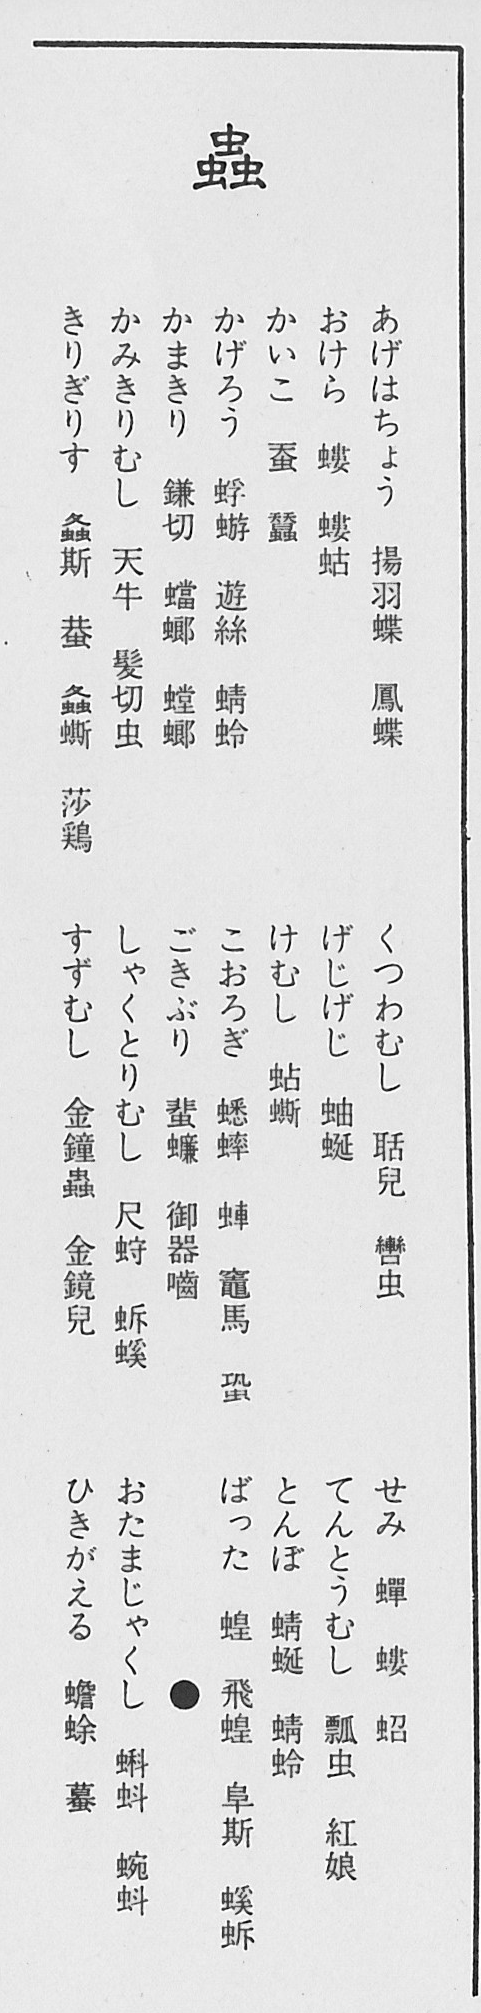 蟲
あげはちょう　揚羽蝶　鳳蝶
おけら　螻　螻蛄
かいこ　蚕　蠶
かげろう　蜉蝣　遊絲　蜻蛉
かまきり　鎌切　蟷螂　螳螂
かみきりむし　天牛　髪切虫
きりぎりす　螽斯　蛬　螽蟖　莎鶏
くつわむし　聒兒　轡虫
げじげじ　蚰蜒
けむし　蛅蟖
こおろぎ　蟋蟀　蛼　竈馬　蛩
ごきぶり　蜚蠊　御器噛
しゃくとりむし　尺蠖　蚸蠖
すずむし　金鐘蟲　金鏡兒
せみ　蟬　螻　蛁
てんとうむし　瓢虫　紅娘
とんぼ　蜻蜒　蜻蛉
ばった　蝗　飛蝗　阜斯　螇蚸
●
おたまじゃくし　蝌蚪　蜿蚪
ひきがえる　蟾蜍　蟇